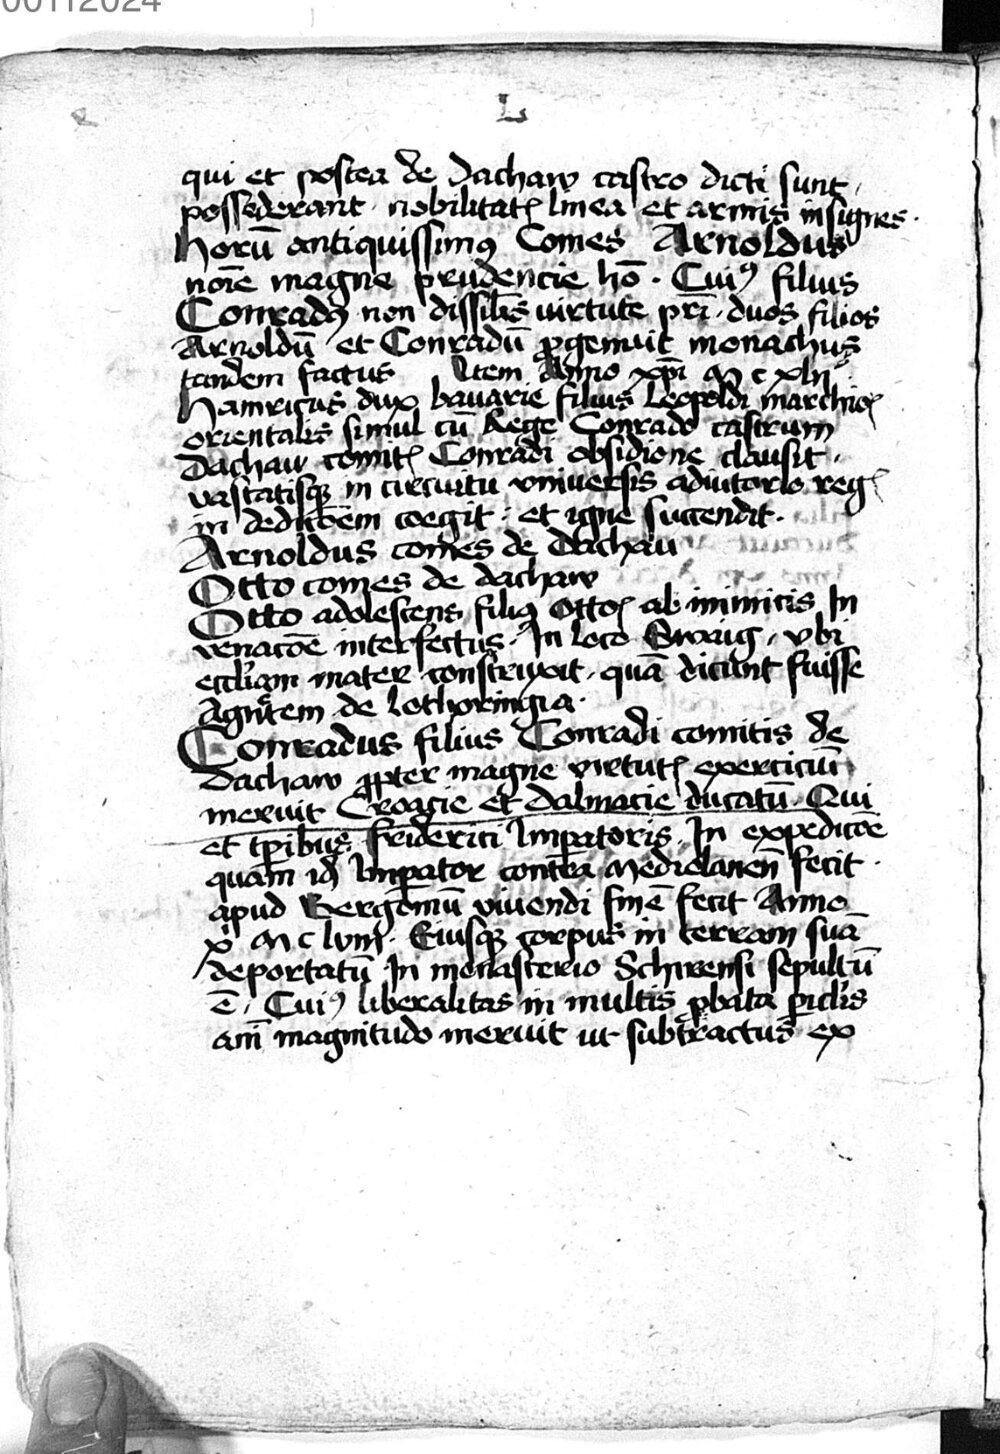 00112024
L
qui et postea de Dachaw castro dicti sunt,
possederant. nobilitatꝭ linea et armis insignes.
horū antiquissimꝰ Comes Arnoldus
noīe magne prudencie hō. Cuiꝰ filius
Conradꝰ non dissil̄is virtute pr̄i. duos filios
Arnoldū et Conradū ꝓgenuit monachus
tandem factus Item Anno xp̄i M c xlij
hainricus dux bauarie filius Leopoldi marchioꝭ
orientalis simul cū Rege Conrado castrum
Dachaw comitꝭ Conradi obsidione clausit.
vastatisqꝫ in circuitu vniuersis adiutorio regꝭ
in dediccōem coegit: et igne succendit.
Arnoldus comes de Dachau
Otto comes de dachaw
Otto adolescens filiꝰ Ottoꝭ ab inimicis In
venacōe interfectus. In loco, vbi
eccl̄iam mater construxit, quā dicunt fuisse
Agnetem de Lothoringia.
Conradus filius Conradi comitis de
Dachaw ꝓpter magne virtutꝭ exerciciū
meruit Croacie et Dalmacie ducatū. Qui
et tp̄ibus friderici Imꝑatoris. In expedicōe
quam id̄ Imꝑator contra Mediolanen̄ fecit.
apud Bergomū viuendi finē fecit Anno
x̄ M c lviiij. Eiusqꝫ corpus in terram suā
deportatū In monasterio Schirensi sepultū
ē. Cuiꝰ liberalitas in multis ꝓbata ꝑicl̄is
ani͞ magnitudo meruit ut subtractus ex